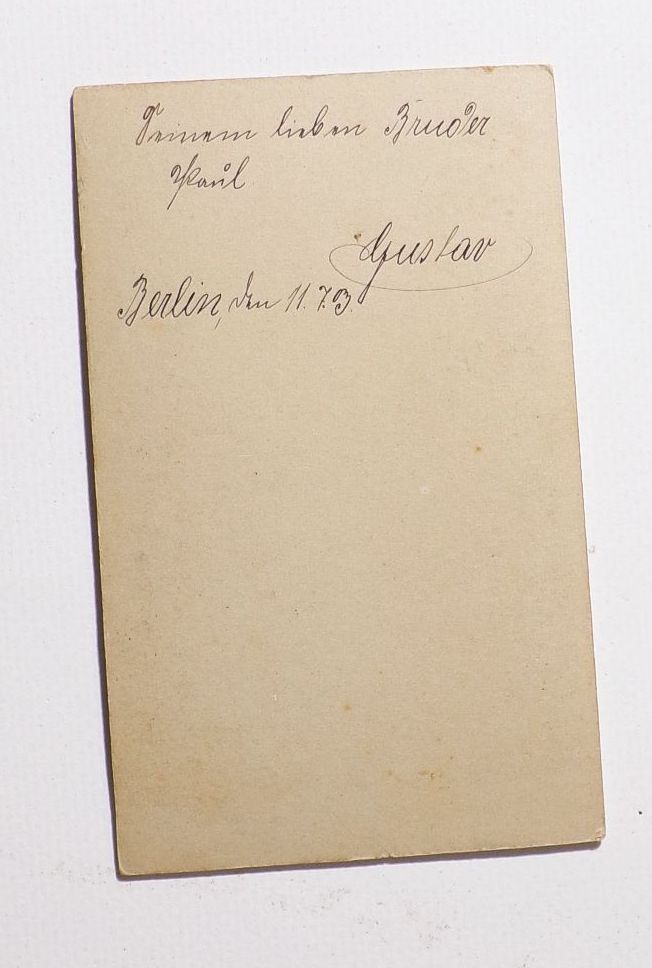 Seinem lieben Bruder
Paul
Gustav
Berlin, den 11.7.3.